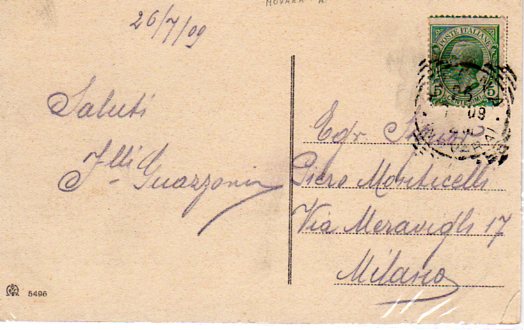 NOVARA A.
26/7/09
POSTE ITALIANE
5 5
09
Saluti
Flli Guazzoni
Egr. Signor
Piero Monticelli
Via Meravigli 17
Milano
5496